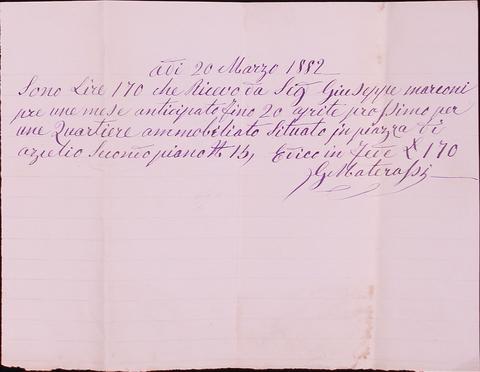 Adi 20 Marzo 1882
Sono Lire 170 che Ricevo da Sig Giuseppe marconi
pre une mese anticipato fino 20 aprile prossimo per
une Quartiere ammobiliato Situato in piazza di
azzelio Secondo piano № 15, in Fede £ 170
G. Materassi